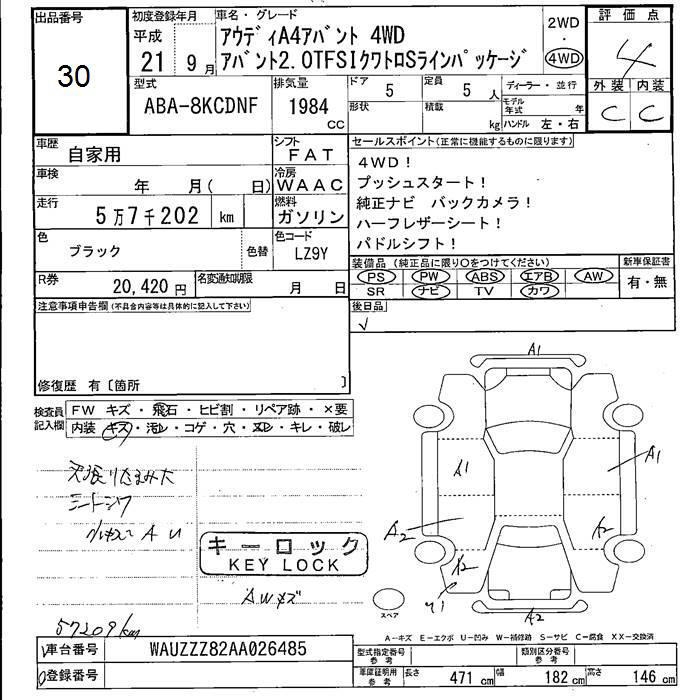 出品番号
30
初度登録年月
平成
21 9月
車名・グレード
アウディA4アバント 4WD
アバント2.0TFSIクワトロSラインパッケージ
2WD
・
4WD
評価点
4
外装 内装
C C
型式
ABA-8KCDNF
排気量
1984
CC
ドア
5
定員
5 人
形状
積載
kg
ディーラー・並行
モデル年式
年
ハンドル 左・右
車歴
自家用
シフト
FAT
車検
年 月( 日)
冷房
WAAC
走行
5万7千202 km
燃料
ガソリン
色
ブラック
色替
色コード
LZ9Y
R券
20,420円
名変通知期限
月 日
セールスポイント(正常に機能するものに限ります)
4WD!
プッシュスタート!
純正ナビ バックカメラ!
ハーフレザーシート!
パドルシフト!
装備品(純正品に限り○をつけてください)
PS PW ABS エアB AW
SR ナビ TV カワ
新車保証書
有・無
後日品
注意事項申告欄(不具合内容等は具体的に記入して下さい)
修復歴 有〔箇所 〕
検査員
記入欄
FW キズ・飛石・ヒビ割・リペア跡・×要
内装 キズ・汚レ・コゲ・穴・ヌレ・キレ・破レ
キーロック
KEY LOCK
AWキズ
57209km
A1
A1
A1
A2
A2
A2
A2
スペア
A-キズ E-エクボ U-凹み W-補修跡 S-サビ C-腐食 XX-交換済
車台番号
WAUZZZ82AA026485
登録番号
型式指定番号
参考
類別区分番号
参考
車庫証明用
参考
長さ 471 cm 幅 182 cm 高さ 146 cm